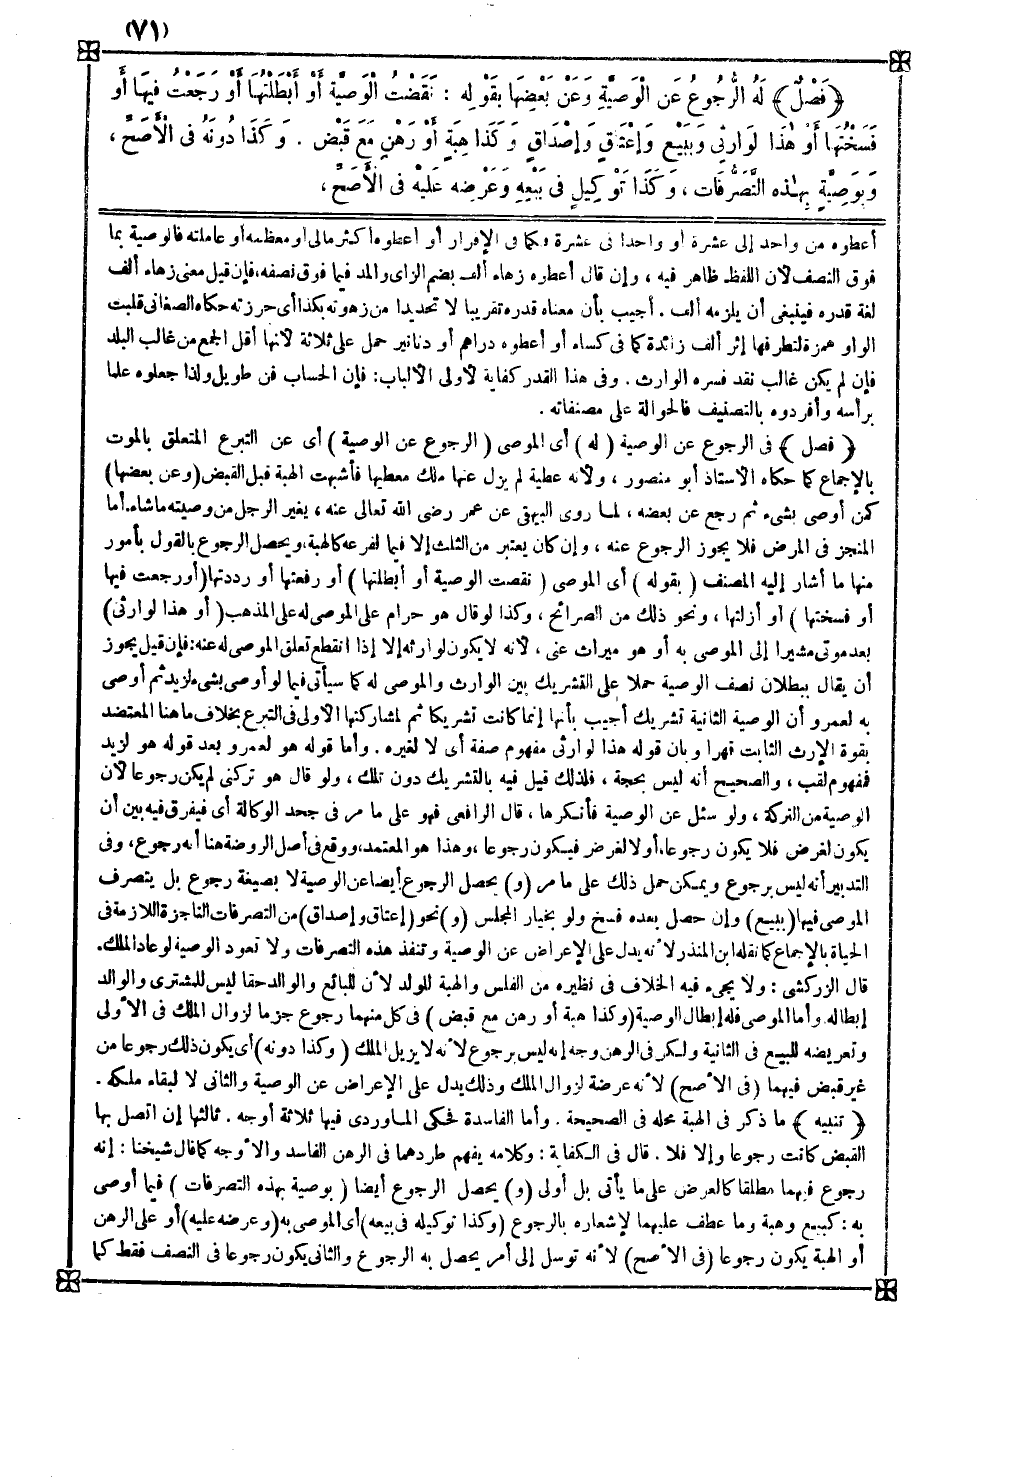 (٧١)
﴿فَصْلٌ﴾ لَهُ الرُّجُوعُ عَنِ الْوَصِيَّةِ وَعَنْ بَعْضِهَا بِقَوْلِهِ : نَقَضْتُ الْوَصِيَّةَ أَوْ أَبْطَلْتُهَا أَوْ رَجَعْتُ فِيهَا أَوْ
فَسَخْتُهَا أَوْ هٰذَا لِوَارِثِي وَبِبَيْعٍ وَإِعْتَاقٍ وَإِصْدَاقٍ وَكَذَا هِبَةٍ أَوْ رَهْنٍ مَعَ قَبْضٍ . وَكَذَا دُونَهُ فِي الْأَصَحِّ ،
وَبِوَصِيَّةٍ بِهٰذِهِ التَّصَرُّفَاتِ ، وَكَذَا تَوْكِيلٍ فِي بَيْعِهِ وَعَرْضِهِ عَلَيْهِ فِي الْأَصَحِّ ،
أعطوه من واحد إلى عشرة أو واحدا فى عشرة فكما فى الإقرار أو أعطوه أكثر مالى أو معظمه أو عاملته فالوصية بما
فوق النصف لأن اللفظ ظاهر فيه ، وإن قال أعطوه زهاء ألف بضم الزاى والمد فيما فوق نصفه، فإن قيل معنى زهاء ألف
لغة قدره فينبغى أن يلزمه ألف . أجيب بأن معناه قدره تقريبا لا تحديدا من زهوته بكذا أى حرزته حكاه الصغانى قلبت
الواو همزة لتطرفها إثر ألف زائدة كما فى كساء أو أعطوه دراهم أو دنانير حمل على ثلاثة لأنها أقل الجمع من غالب البلد
فإن لم يكن غالب نقد فسره الوارث . وفى هذا القدر كفاية لأولى الألباب: فإن الحساب فن طويل ولذا جعلوه علما
برأسه وأفردوه بالتصنيف فالحوالة على مصنفاته .
﴿ فصل ﴾ فى الرجوع عن الوصية ( له ) أى الموصى ( الرجوع عن الوصية ) أى عن التبرع المتعلق بالموت
بالإجماع كما حكاه الاستاذ أبو منصور ، ولأنه عطية لم يزل عنها ملك معطيها فأشبهت الهبة قبل القبض (وعن بعضها)
كمن أوصى بشىء ثم رجع عن بعضه ، لما روى البيهقى عن عمر رضى الله تعالى عنه ، يغير الرجل من وصيته ماشاء. أما
المنجز فى المرض فلا يجوز الرجوع عنه ، وإن كان يعتبر من الثلث إلا فيما لفرعه كالهبة، ويحصل الرجوع بالقول بأمور
منها ما أشار إليه المصنف ( بقوله ) أى الموصى ( نقضت الوصية أو أبطلتها ) أو رفعتها أو رددتها (أو رجعت فيها
أو فسختها ) أو أزلتها ، ونحو ذلك من الصرائح ، وكذا لو قال هو حرام على الموصى له على المذهب ( أو هذا لوارثى)
بعد موتى مشيرا إلى الموصى به أو هو ميراث عنى ، لأنه لا يكون لوارثه إلا إذا انقطع تعلق الموصى له عنه: فإن قيل يجوز
أن يقال ببطلان نصف الوصية حملا على التشريك بين الوارث والموصى له كما سيأتى فيما لو أوصى بشىء لزيد ثم أوصى
به لعمرو أن الوصية الثانية تشريك أجيب بأنها إنما كانت تشريكا ثم لمشاركتها الأولى فى التبرع بخلاف ما هنا المعتضد
بقوة الإرث الثابت قهرا وبان قوله هذا لوارثى مفهوم صفة أى لا لغيره . وأما قوله هو لعمرو بعد قوله هو لزيد
فمفهوم لقب ، والصحيح أنه ليس بحجة ، فلذلك قيل فيه بالتشريك دون تلك ، ولو قال هو تركتى لم يكن رجوعا لأن
الوصية من التركة ، ولو سئل عن الوصية فأنكرها ، قال الرافعى فهو على ما مر فى جحد الوكالة أى فيفرق فيه بين أن
يكون لغرض فلا يكون رجوعا، أولا لغرض فيكون رجوعا ،وهذا هو المعتمد، ووقع فى أصل الروضة هنا أنه رجوع، وفى
التدبير أنه ليس برجوع ويمكن حمل ذلك على ما مر (و) يحصل الرجوع أيضا عن الوصية لا بصيغة رجوع بل بتصرف
الموصى فيها (ببيع) وإن حصل بعده فسخ ولو بخيار المجلس (و) نحو (إعتاق وإصداق) من التصرفات الناجزة اللازمة فى
الحياة بالإجماع كما نقله ابن المنذر لأنه يدل على الإعراض عن الوصية وتنفذ هذه التصرفات ولا تعود الوصية لو عاد الملك.
قال الزركشى : ولا يجىء فيه الخلاف فى نظيره من الفلس والهبة للولد لأن للبائع والوالد حقا ليس للمشترى والوالد
إبطاله. وأما الموصى فله إبطال الوصية (وكذا هبة أو رهن مع قبض ) فى كل منهما رجوع جزما لزوال الملك فى الأولى
وتعريضه للبيع فى الثانية ولكن فى الرهن وجه إنه ليس برجوع لأنه لا يزيل الملك ( وكذا دونه) أى يكون ذلك رجوعا من
غير قبض فيهما (فى الأصح) لأنه عرضة لزوال الملك وذلك يدل على الإعراض عن الوصية والثانى لا لبقاء ملكه .
﴿ تنبيه ﴾ ما ذكر فى الهبة محله فى الصحيحة . وأما الفاسدة فحكى الماوردى فيها ثلاثة أوجه . ثالثها إن اتصل بها
القبض كانت رجوعا وإلا فلا . قال فى الكفاية : وكلامه يفهم طردهما فى الرهن الفاسد والأوجه كما قال شيخنا : إنه
رجوع فيهما مطلقا كالعرض على ما يأتى بل أولى (و) يحصل الرجوع أيضا ( بوصية بهذه التصرفات ) فيما أوصى
به : كبيع وهبة وما عطف عليهما لإشعاره بالرجوع (وكذا توكيله فى بيعه) أى الموصى به (وعرضه عليه) أو على الرهن
أو الهبة يكون رجوعا (فى الأصح) لأنه توسل إلى أمر يحصل به الرجوع والثانى يكون رجوعا فى النصف فقط كما